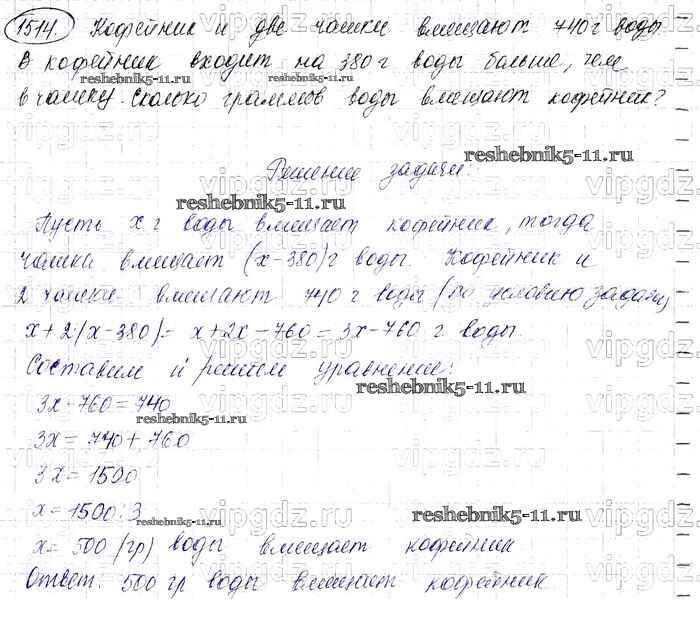 1514. Кофейник и две чашки вмещают 740 г воды.
В кофейник входит на 380 г воды больше, чем
в чашку. Сколько граммов воды вмещают кофейник?
Решение задачи:
Пусть x г воды вмещает кофейник, тогда
чашки вмещает (x-380) г воды. Кофейник и
2 чашки вмещают 740 г воды (по условию задачи)
x+2(x-380)= x+2x-760=3x-760 г воды.
Составим и решим уравнение:
3x-760=740
3x=740+760
3x=1500
x=1500:3
x=500 (гр) воды вмещает кофейник
Ответ: 500 гр воды вмещает кофейник
reshebnik5-11.ru
reshebnik5-11.ru
reshebnik5-11.ru
reshebnik5-11.ru
reshebnik5-11.ru
reshebnik5-11.ru
reshebnik5-11.ru
vipgdz.ru
vipgdz.ru
vipgdz.ru